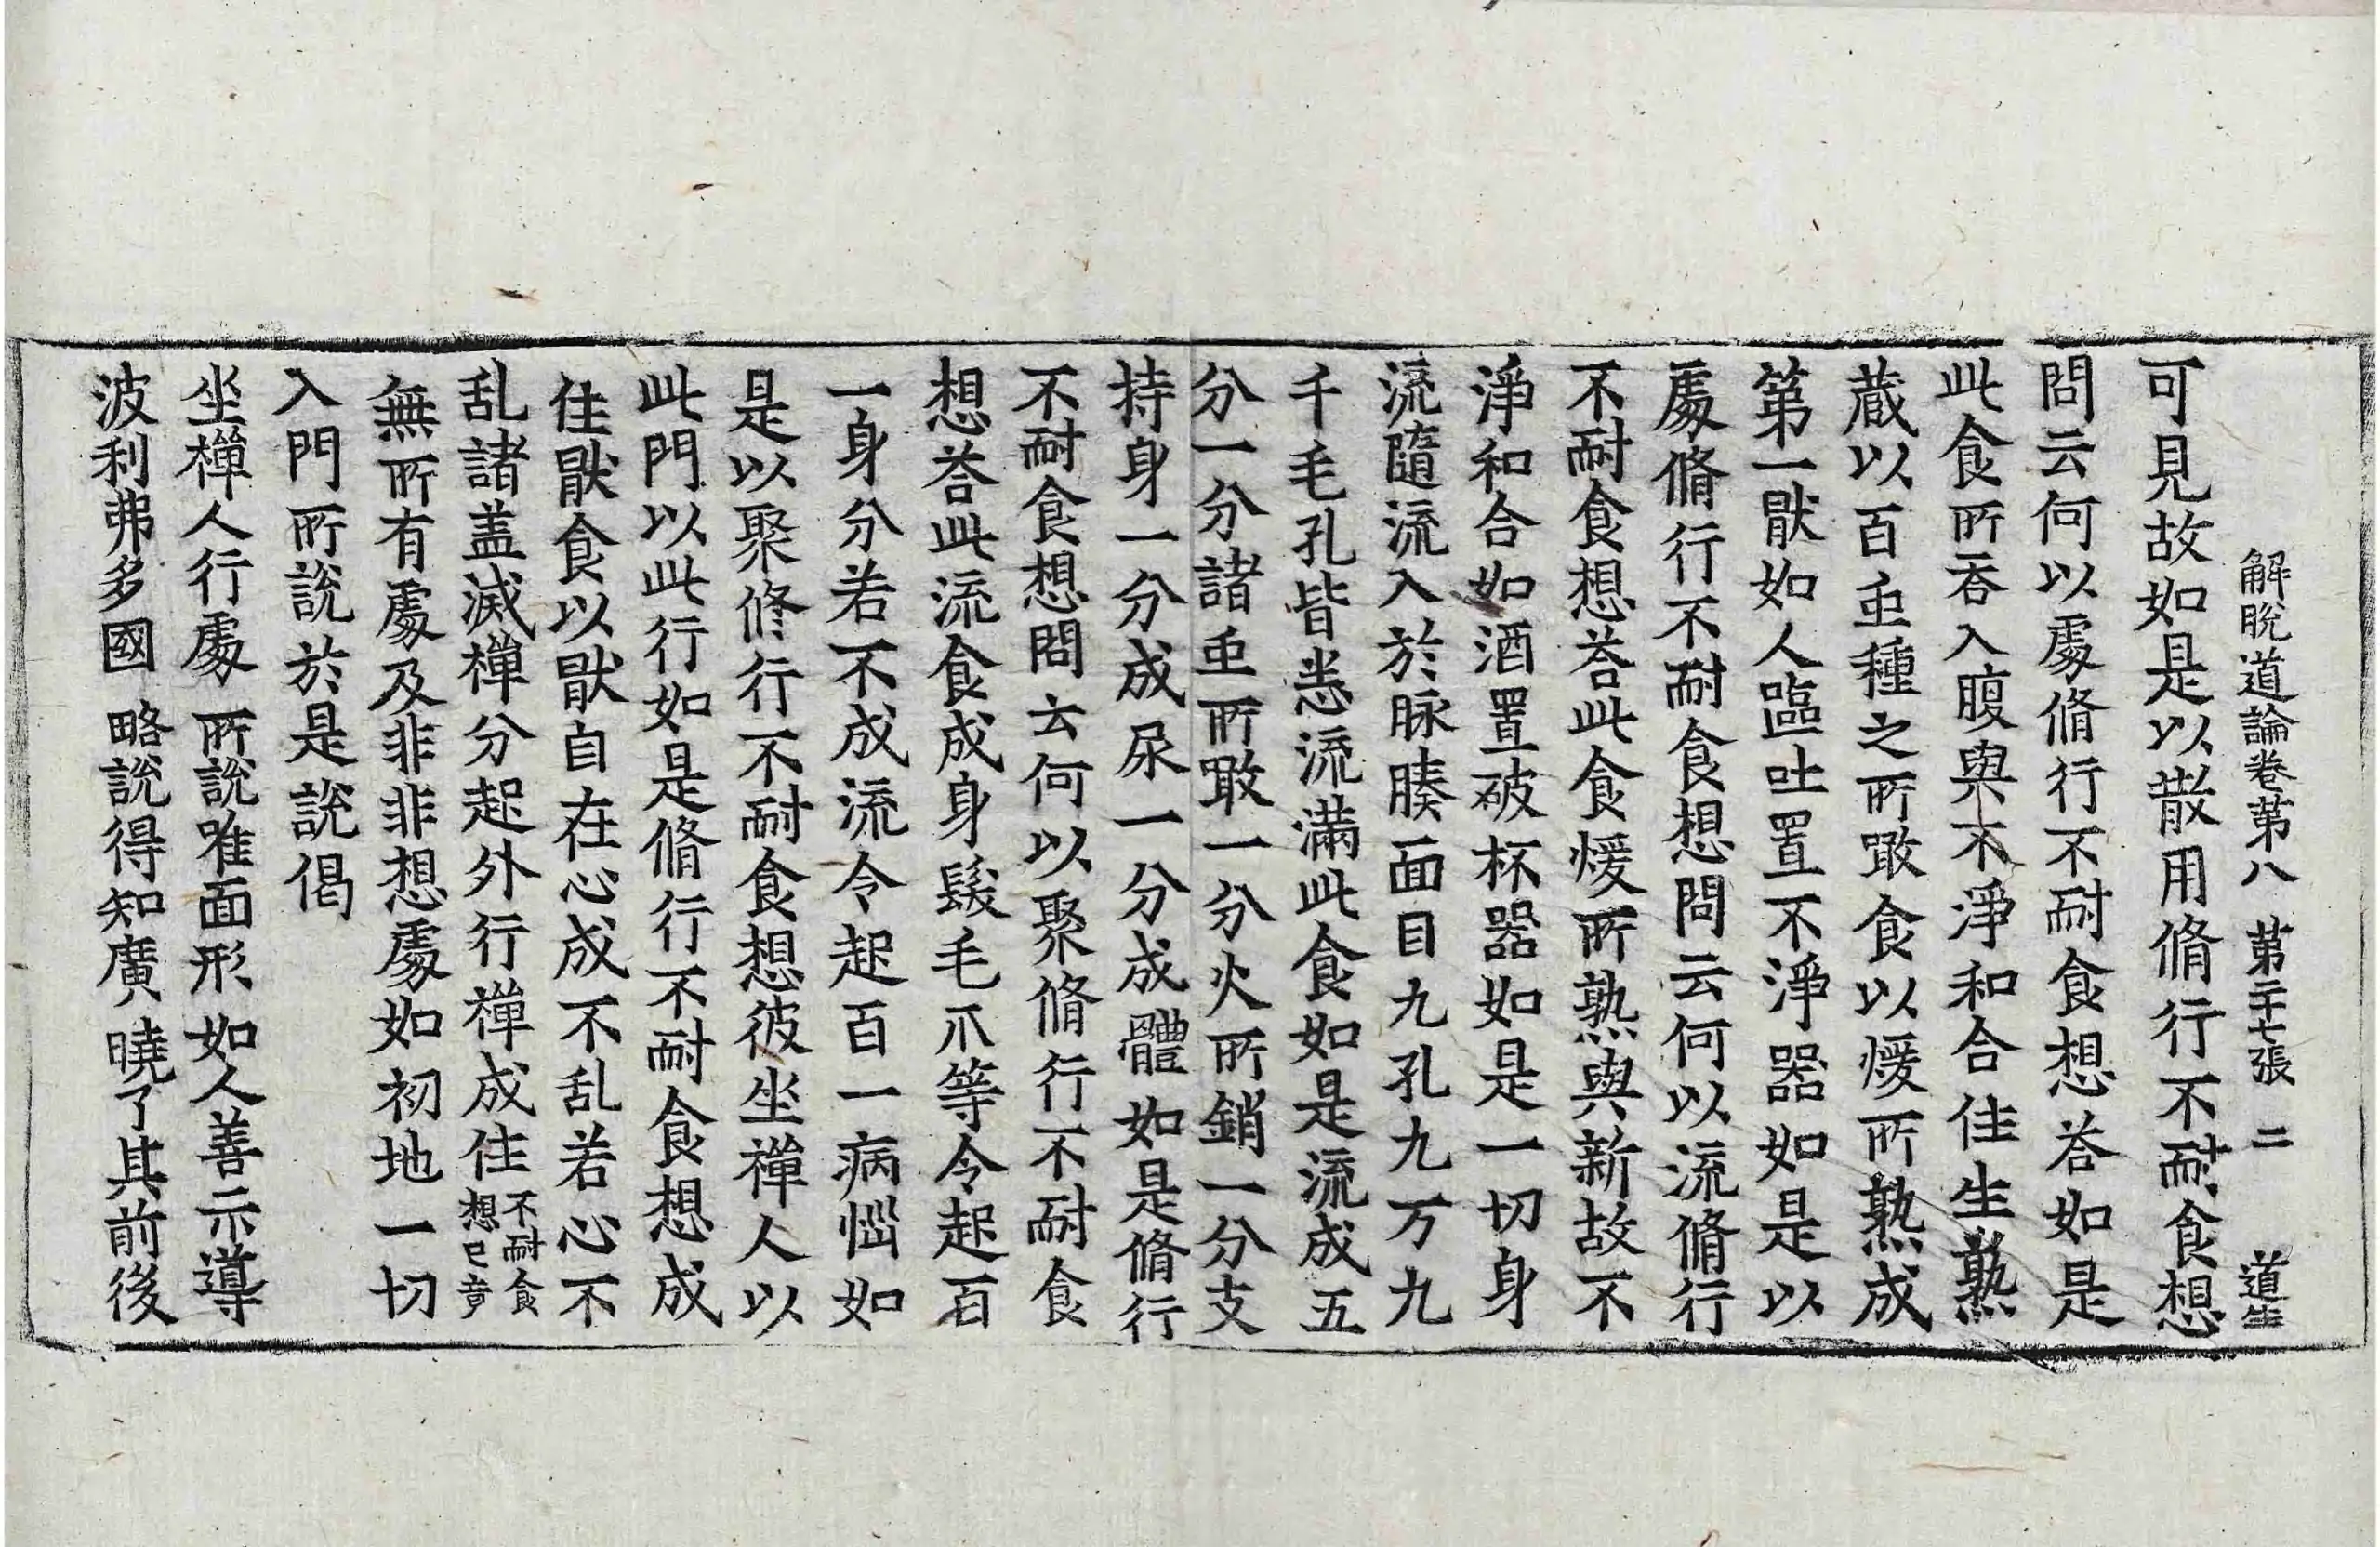 解脫道論卷第八　第二十七張　二　道生
可見故如是以散用脩行不耐食想
問云何以處脩行不耐食想荅如是
此食所吞入腹與不淨和合住生熟
蔵以百重種之所噉食以煖所熟成
第一猒如人嘔吐置不淨器如是以
處脩行不耐食想問云何以流脩行
不耐食想荅此食煖所熟與新故不
淨和合如酒置破杯器如是一切身
流隨流入於脉腠面目九孔九万九
千毛孔皆悉流滿此食如是流成五
分一分諸重所噉一分火所銷一分支
持身一分成尿一分成體如是脩行
不耐食想問云何以聚脩行不耐食
想荅此流食成身髮毛爪等令起百
一身分若不成流令起百一病惱如
是以聚修行不耐食想彼坐禪人以
此門以此行如是脩行不耐食想成
住猒食以猒自在心成不乱若心不
乱諸盖滅禪分起外行禪成住不耐食想已竟
無所有處及非非想處如初地一切
入門所說於是說偈
坐禪人行處　所說唯面形　如人善示導
波利弗多國　略說得知廣　曉了其前後